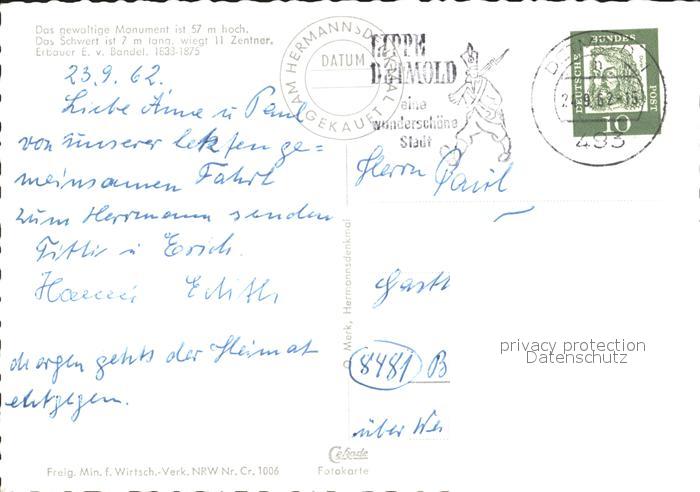 Das gewaltige Monument ist 57 m hoch.
Das Schwert ist 7 m lang, wiegt 11 Zentner.
Erbauer E. v. Bandel. 1833-1875
AM HERMANNSDENKMAL
DATUM
GEKAUFT
LIPPE
DETMOLD
eine
wunderschöne
Stadt
DEUTSCHE
BUNDES
POST
10
493
23.9.62.
Liebe Änne u Paul
von unserer letzten ge=
meinsamen Fahrt
zum Herrmann senden
u Erich.
Hanni Edith
Morgen gehts der Heimat
entgegen.
Herrn Paul
Gastt
8481 B
über Wei
© Merk, Hermannsdenkmal
privacy protection
Datenschutz
Cekade
Freig. Min. f. Wirtsch.-Verk. NRW Nr. Cr. 1006
Fotokarte